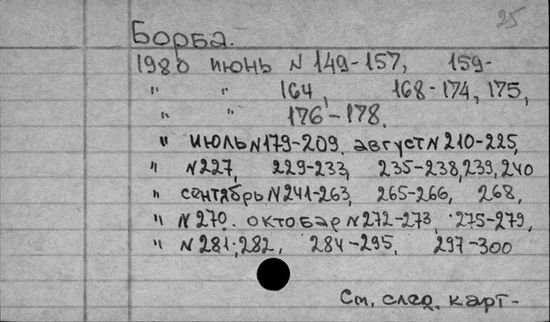 25
Борба.
1980 июнь N 149-157, 159-
" " 164, 168-174, 175,
" " 176-178.
" июль N179-209. август N 210-225,
" N227, 229-233, 235-238, 239, 240
" сентябрь N241-263, 265-266, 268,
" N 270. октобар N272-273, 275-279,
" N 281, 282, 284-295, 297-300
См. след. карт-